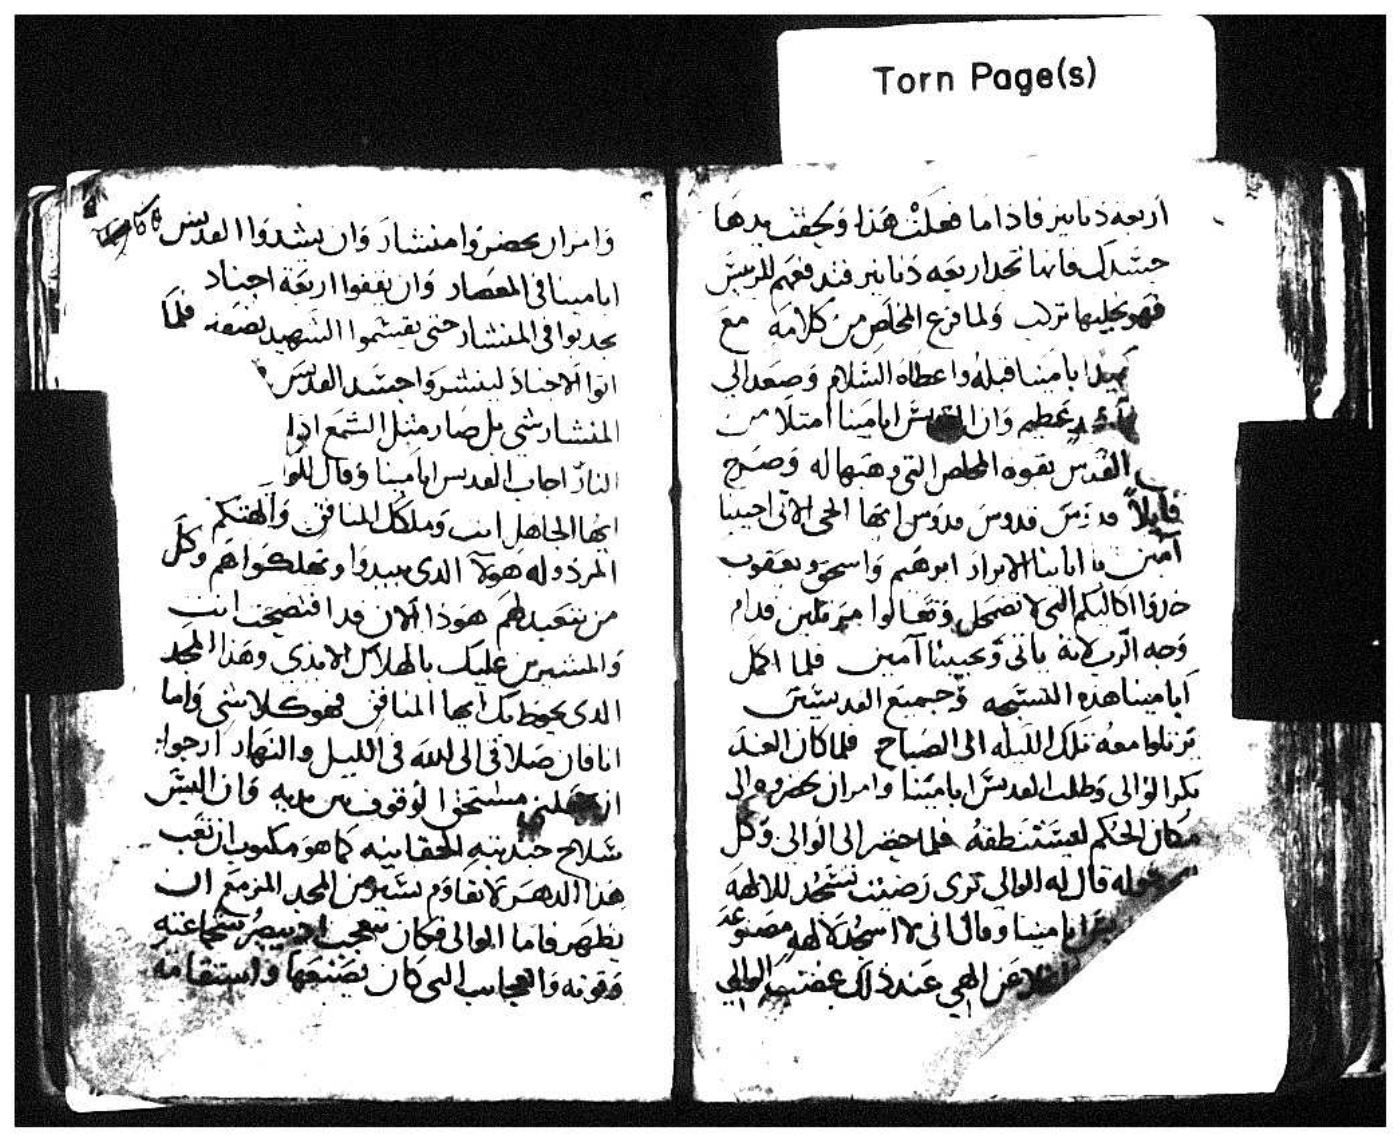 Torn Page(s)
اربعه دنانير فاذا ما فعلت هذا وكفنت بدها
جسدك فانها تجد اربعه دنانير فتدفعهم للريس
فهو يجليها تركب ولما فرغ المخلص من كلامه مع
ابا مينا قبله واعطاه السلام وصعد الى
عظيم وان القديس ابا مينا امتلا من
القدس بقوه المخلص التى وهبها له وصرخ
قايلاً قدوس قدوس قدوس ايها الحى الاتى احيينا
آمين يا اباينا الابرار ابرهيم واسحق ويعقوب
خدوا اكاليلكم التى لا تضمحل وتعالوا مرتلين قدام
وجه الرب لانه ياتى ويحيينا آمين فلما اكمل
ابا مينا هده التسبحه وجميع القديسين
يرتلوا معه تلك الليله الى الصباح فلما كان الغد
بكر الوالى وطلب القديس ابا مينا وامر ان يحضروه الى
مكان الحكم ليستنطقه فلما حضر الى الوالى وكل
حوله قال له الوالى ترى رضيت تسجد للالهه
ابا مينا وقال انى لا اسجد لالهه مصنوعه
عن الهي عند ذلك غضب الوالي
وامر ان يحضروا منشار وان يشدوا القديس
ابا مينا فى المعصار وان يقفوا اربعة اجناد
يجدبوا فى المنشار حتى يقسموا الشهيد نصفه فلما
اتوا الاجناد لينشروا جسد القديس
المنشار شى بل صار مثل الشمع اذا
النار اجاب القديس ابا مينا وقال للوا
ايها الجاهل انت وملكك المنافق والهتكم
المردوله هولآ الدى يبيدوا وتهلكوا هم وكل
من يتعبد لهم هوذا الان قد افتضحت انت
والمشيرين عليك بالهلاك الابدى وهذا المجد
الدى يحوط بك ايها المنافق فهو كلا شى واما
انا فان صلاتى الى الله فى الليل والنهار ارجوا
مستحق الوقوف بين يديه وان البس
سلاح جنديته الحقانيه كما هو مكتوب ان تعب
هذا الدهر لا يقاوم يسير من المجد المزمع ان
يظهر فاما الوالى فكان يتعجب اد يبصر شجاعته
وقوته والعجايب التى كان يصنعها واستقامه